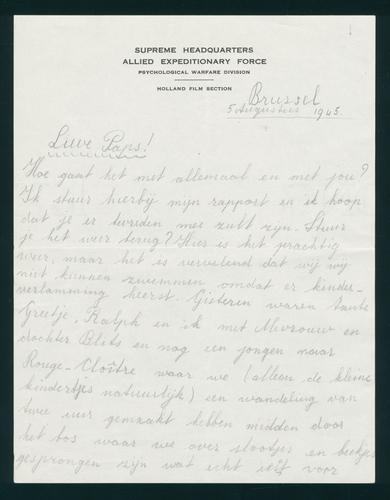 SUPREME HEADQUARTERS
ALLIED EXPEDITIONARY FORCE
PSYCHOLOGICAL WARFARE DIVISION
HOLLAND FILM SECTION
Brussel
5 Augustus 1945.
Lieve Paps!
Hoe gaat het met allemaal en met jou?
Ik stuur hierbij mijn rapport en ik hoop
dat je er tevreden mee zult zijn. Stuur
je het weer terug? Hier is het prachtig
weer, maar het is vervelend dat wij
niet kunnen zwemmen omdat er kinder-
verlamming heerst. Gisteren waren tante
Greetje, Ralph en ik met Mevrouw en
dochter Blits en nog een jongen naar
Rouge-Cloître waar we (alleen de kleine
kindertjes natuurlijk) een wandeling van
twee uur gemaakt hebben midden door
het bos waar we over slootjes en beekjes
gesprongen zijn wat echt iets voor